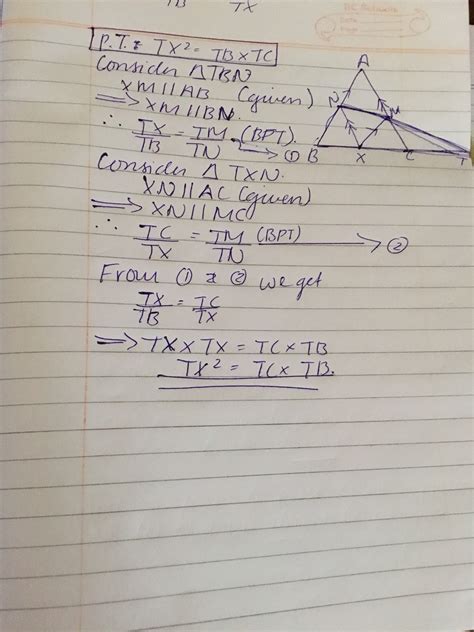 TB TX
P.T.: TX² = TB×TC
Consider ΔTBN
XM||AB (given)
⟹ XM||BN.
∴ TX/TB = TM/TN (BPT). → ①
Consider ΔTXN.
XN||AC (given)
⟹ XN||MC
∴ TC/TX = TM/TN (BPT) → ②
From ① & ② we get
TX/TB = TC/TX
⟹ TX×TX = TC×TB
TX² = TC× TB.
A
N M
B X C T